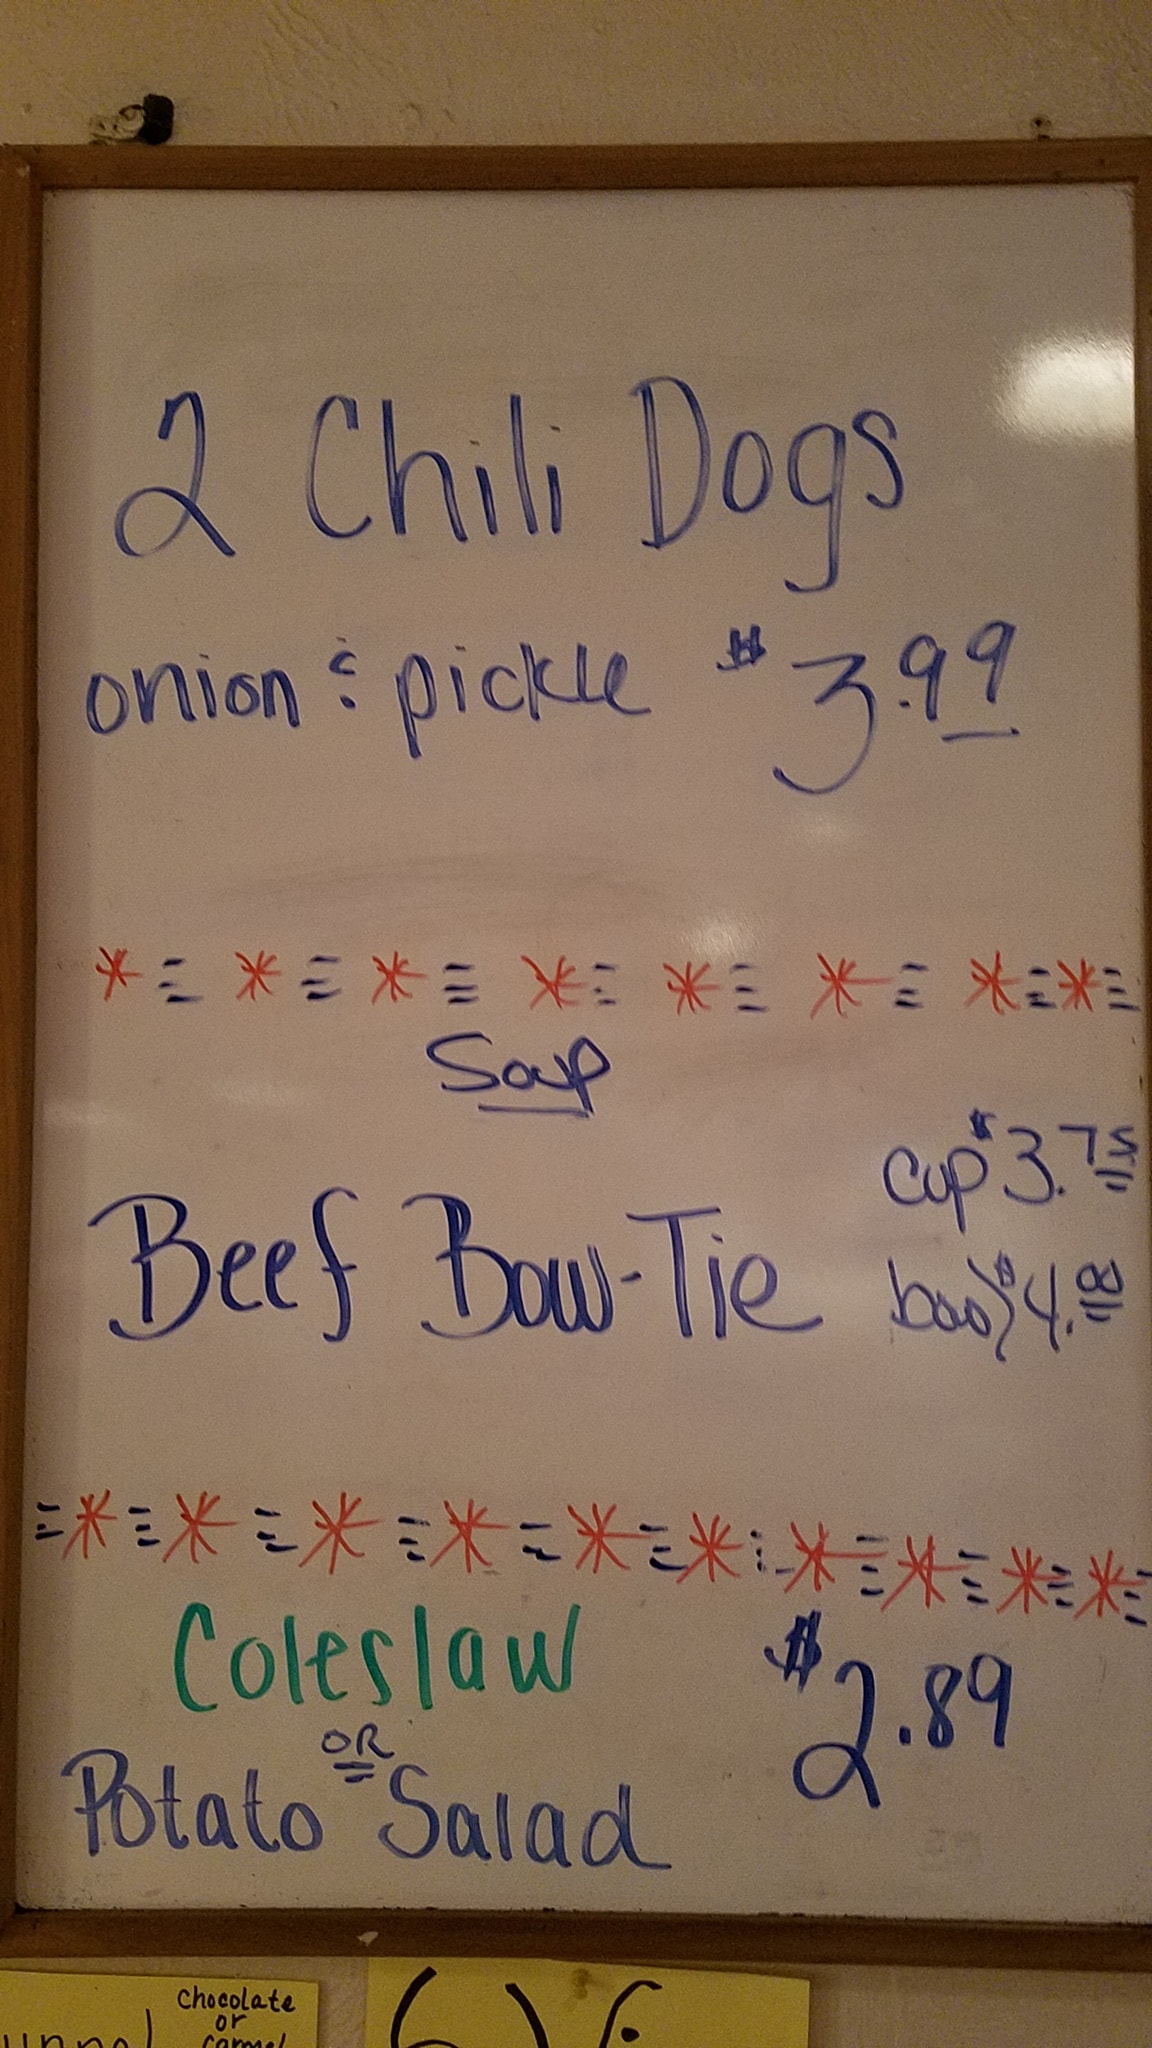 2 Chili Dogs
onion & pickle $3.99
Soup
cup $3.75
Beef Bow-Tie
bowl $4.00
Coleslaw $2.89
OR
Potato Salad
chocolate
or